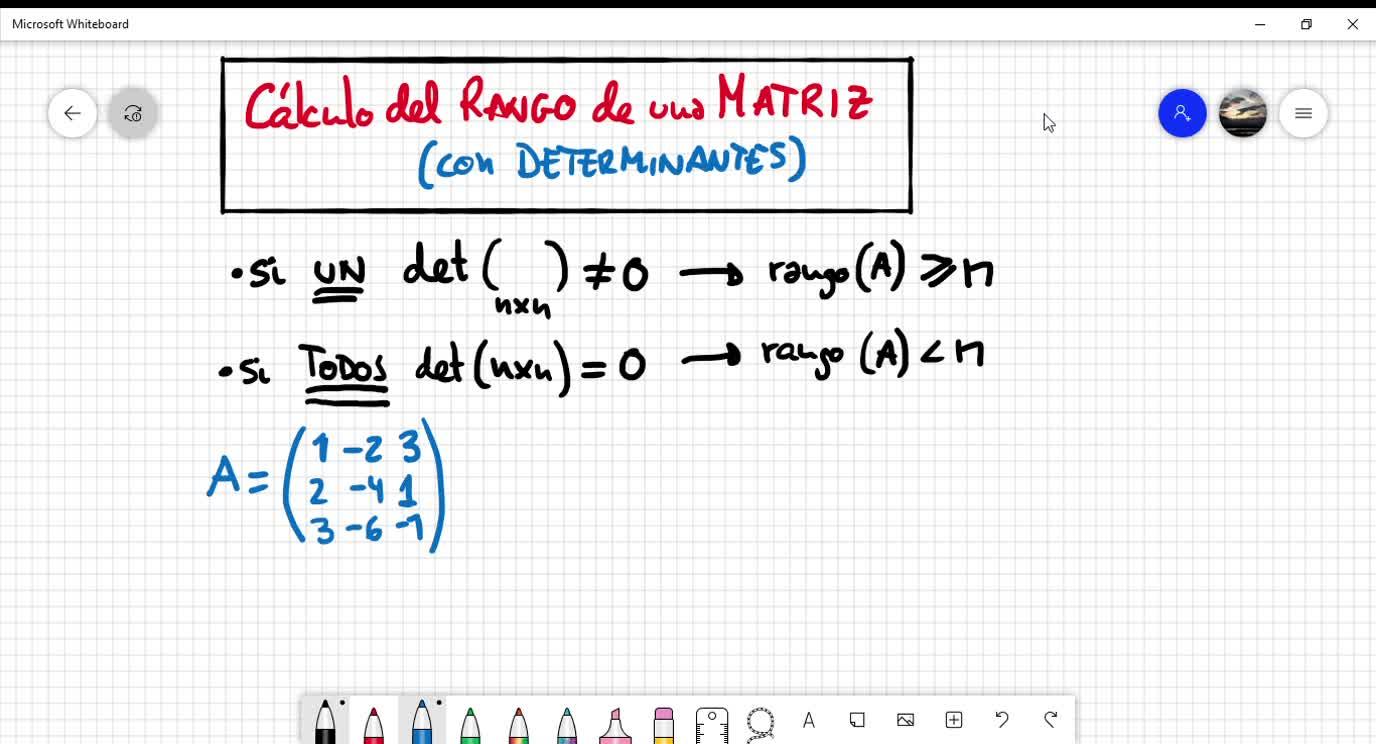 Microsoft Whiteboard
Cálculo del RANGO de una MATRIZ
(con DETERMINANTES)
• si UN det ( )n×n ≠ 0 → rango (A) ≥ n
• si TODOS det (n×n) = 0 → rango (A) < n
A = ( 1 -2 3
2 -4 1
3 -6 -7 )
A